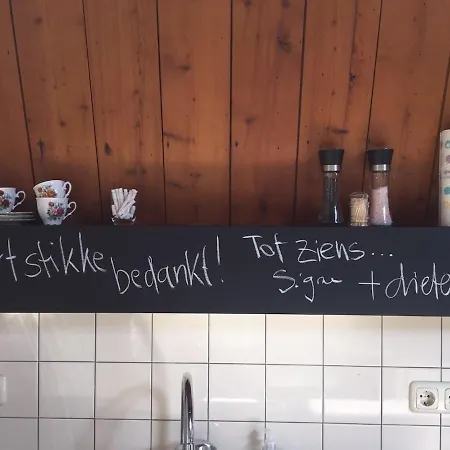 rt stikke bedankt!
Tot ziens...
Signe + diete